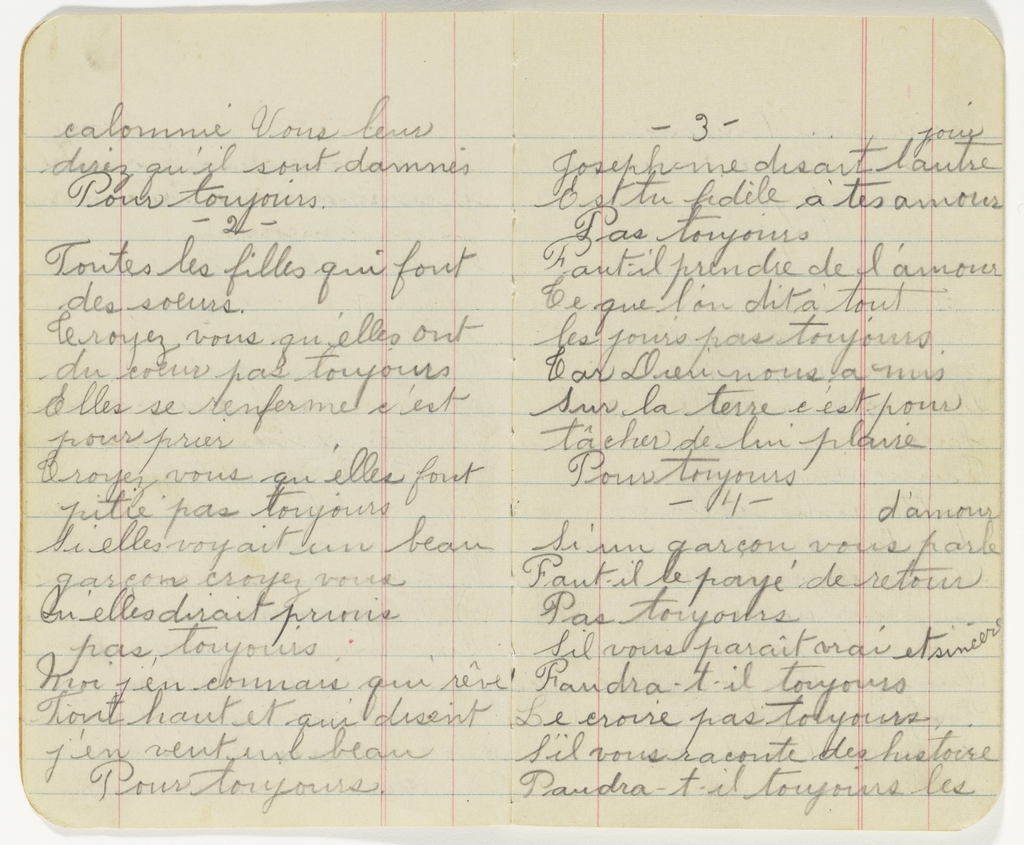 calomnié Vous leur
direz qu'il sont damnés
Pour toujours.
- 2 -
Toutes les filles qui font
des soeurs.
Croyez vous qu'elles ont
du coeur pas toujours
Elles se renferme c'est
pour prier
Croyez vous qu'elles font
pitié pas toujours
Si elles voyait un beau
garçon croyez vous
Qu'elles dirait prions
pas toujours
Moi j'en connais qui rêve
Tout haut et qui disent
j'en veut un beau
Pour toujours.
- 3 -
Josephine disait l'autre jour
Est tu fidèle à tes amour
Pas toujours
Faut-il prendre de l'amour
Ce que l'on dit à tout
les jours pas toujours
Car Dieu nous a mis
Sur la terre c'est pour
tâcher de lui plaire
Pour toujours
- 4 -
Si un garçon vous parle d'amour
Faut-il le payé de retour
Pas toujours
S'il vous paraît vrai et sincère
Faudra-t-il toujours
Le croire pas toujours
S'il vous raconte des histoire
Faudra-t-il toujours les